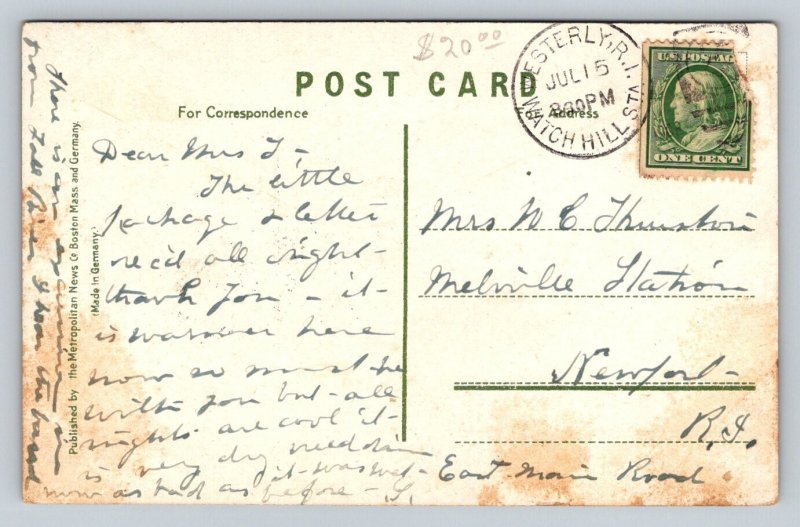 $20.00
POST CARD
For Correspondence
For Address
WESTERLY, R.I.
JUL 15
8 30PM
WATCH HILL STA.
U.S. POSTAG
ONE CENT
Dear Mrs T-
The little
package & letter
rec'd all right-
thank you - it-
is warmer here
now so must be
with you but- all
nights are cool it-
is very dry
it- was wet-
now as bad as before - S.
There is an in
from Fall River I hear the band
Mrs W C Thurston
Melville Station
Newport-
R.I.
East Main Road
Published by the Metropolitan News Co Boston Mass. and Germany.
(Made in Germany.)